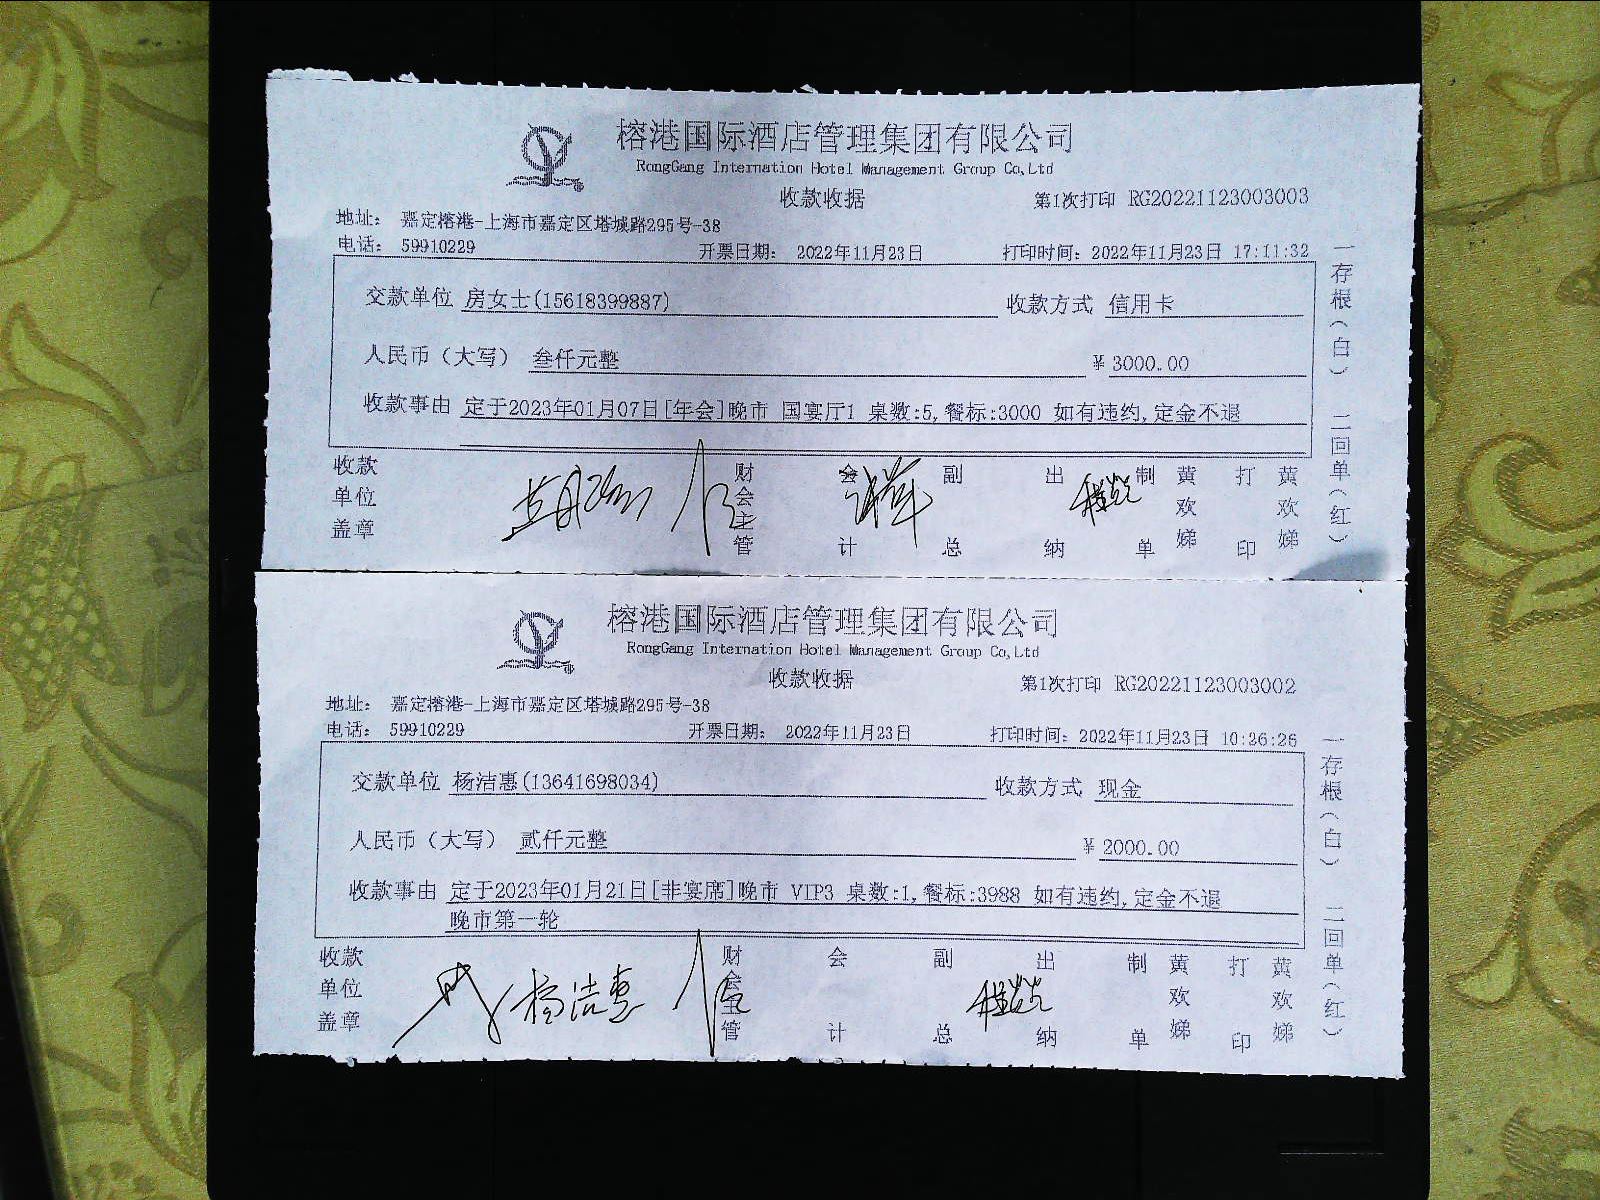 榕港国际酒店管理集团有限公司
RongGang Internation Hotel Management Group Co,Ltd
收款收据
第1次打印 RG20221123003003
地址: 嘉定榕港-上海市嘉定区塔城路295号-38
电话: 59910229 开票日期: 2022年11月23日 打印时间: 2022年11月23日 17:11:32
交款单位 房女士(15618399887) 收款方式 信用卡
人民币(大写) 叁仟元整 ¥ 3000.00
收款事由 定于2023年01月07日[年会]晚市 国宴厅1 桌数:5,餐标:3000 如有违约,定金不退
收款单位盖章 财会主管 会计 副总 出纳 制单 黄欢娣 打印 黄欢娣
一存根(白) 二回单(红)
榕港国际酒店管理集团有限公司
RongGang Internation Hotel Management Group Co,Ltd
收款收据
第1次打印 RG20221123003002
地址: 嘉定榕港-上海市嘉定区塔城路295号-38
电话: 59910229 开票日期: 2022年11月23日 打印时间: 2022年11月23日 10:26:26
交款单位 杨洁惠(13641698034) 收款方式 现金
人民币(大写) 贰仟元整 ¥ 2000.00
收款事由 定于2023年01月21日[非宴席]晚市 VIP3 桌数:1,餐标:3988 如有违约,定金不退
晚市第一轮
收款单位盖章 杨洁惠 财会主管 会计 副总 出纳 制单 黄欢娣 打印 黄欢娣
一存根(白) 二回单(红)